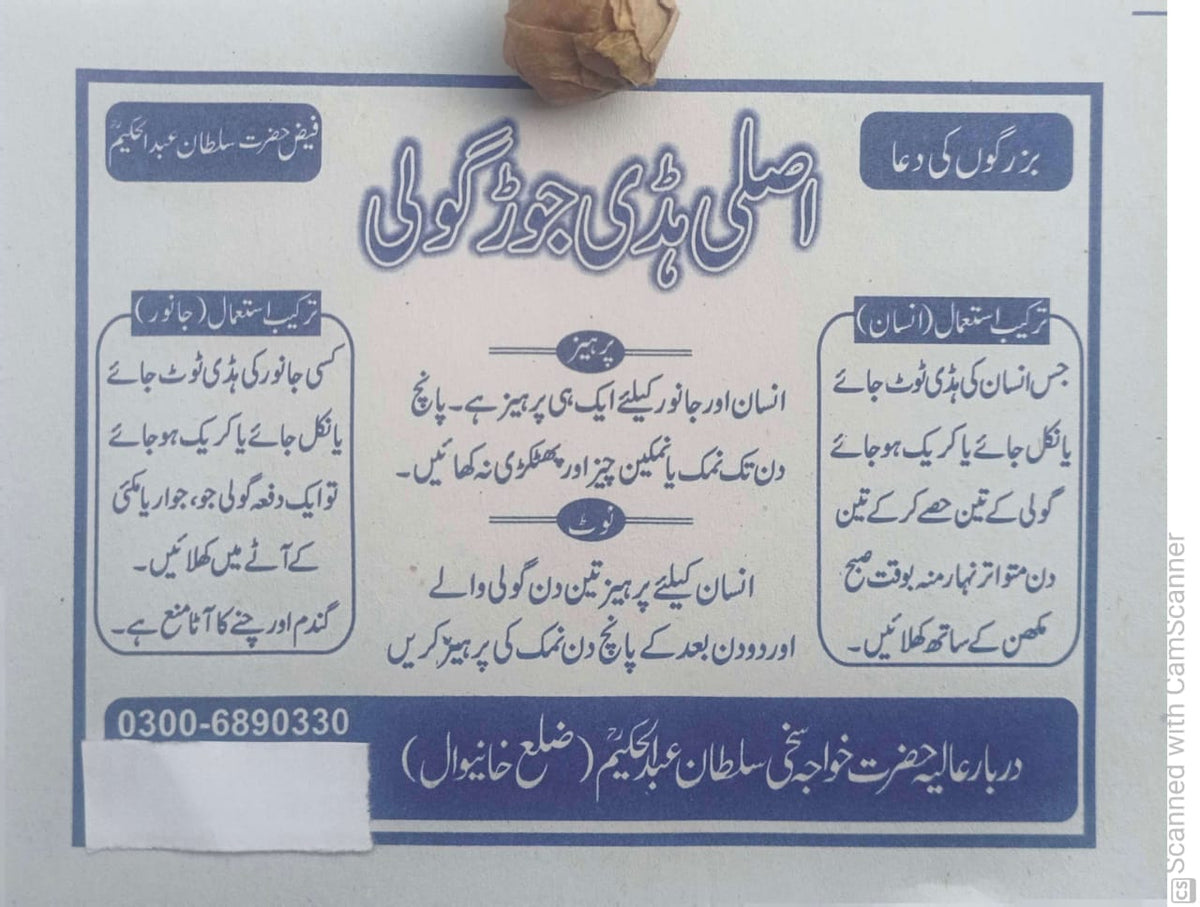 بزرگوں کی دعا
فیض حضرت سلطان عبدالحکیمؒ
اصلی ہڈی جوڑ گولی
ترکیب استعمال (انسان)
جس انسان کی ہڈی ٹوٹ جائے
یا نکل جائے یا کریک ہو جائے
گولی کے تین حصے کر کے تین
دن متواتر نہار منہ بوقت صبح
مکھن کے ساتھ کھلائیں۔
پرہیز
انسان اور جانور کیلئے ایک ہی پرہیز ہے۔ پانچ
دن تک نمک یا نمکین چیز اور پھٹکڑی نہ کھائیں۔
نوٹ
انسان کیلئے پرہیز تین دن گولی والے
اور دو دن بعد کے پانچ دن نمک کی پرہیز کریں
ترکیب استعمال (جانور)
کسی جانور کی ہڈی ٹوٹ جائے
یا نکل جائے یا کریک ہو جائے
تو ایک دفعہ گولی جو، جوار یا مکئی
کے آٹے میں کھلائیں۔
گندم اور چنے کا آٹا منع ہے۔
دربار عالیہ حضرت خواجہ سخی سلطان عبدالحکیمؒ (ضلع خانیوال)
0300-6890330
CS Scanned with CamScanner